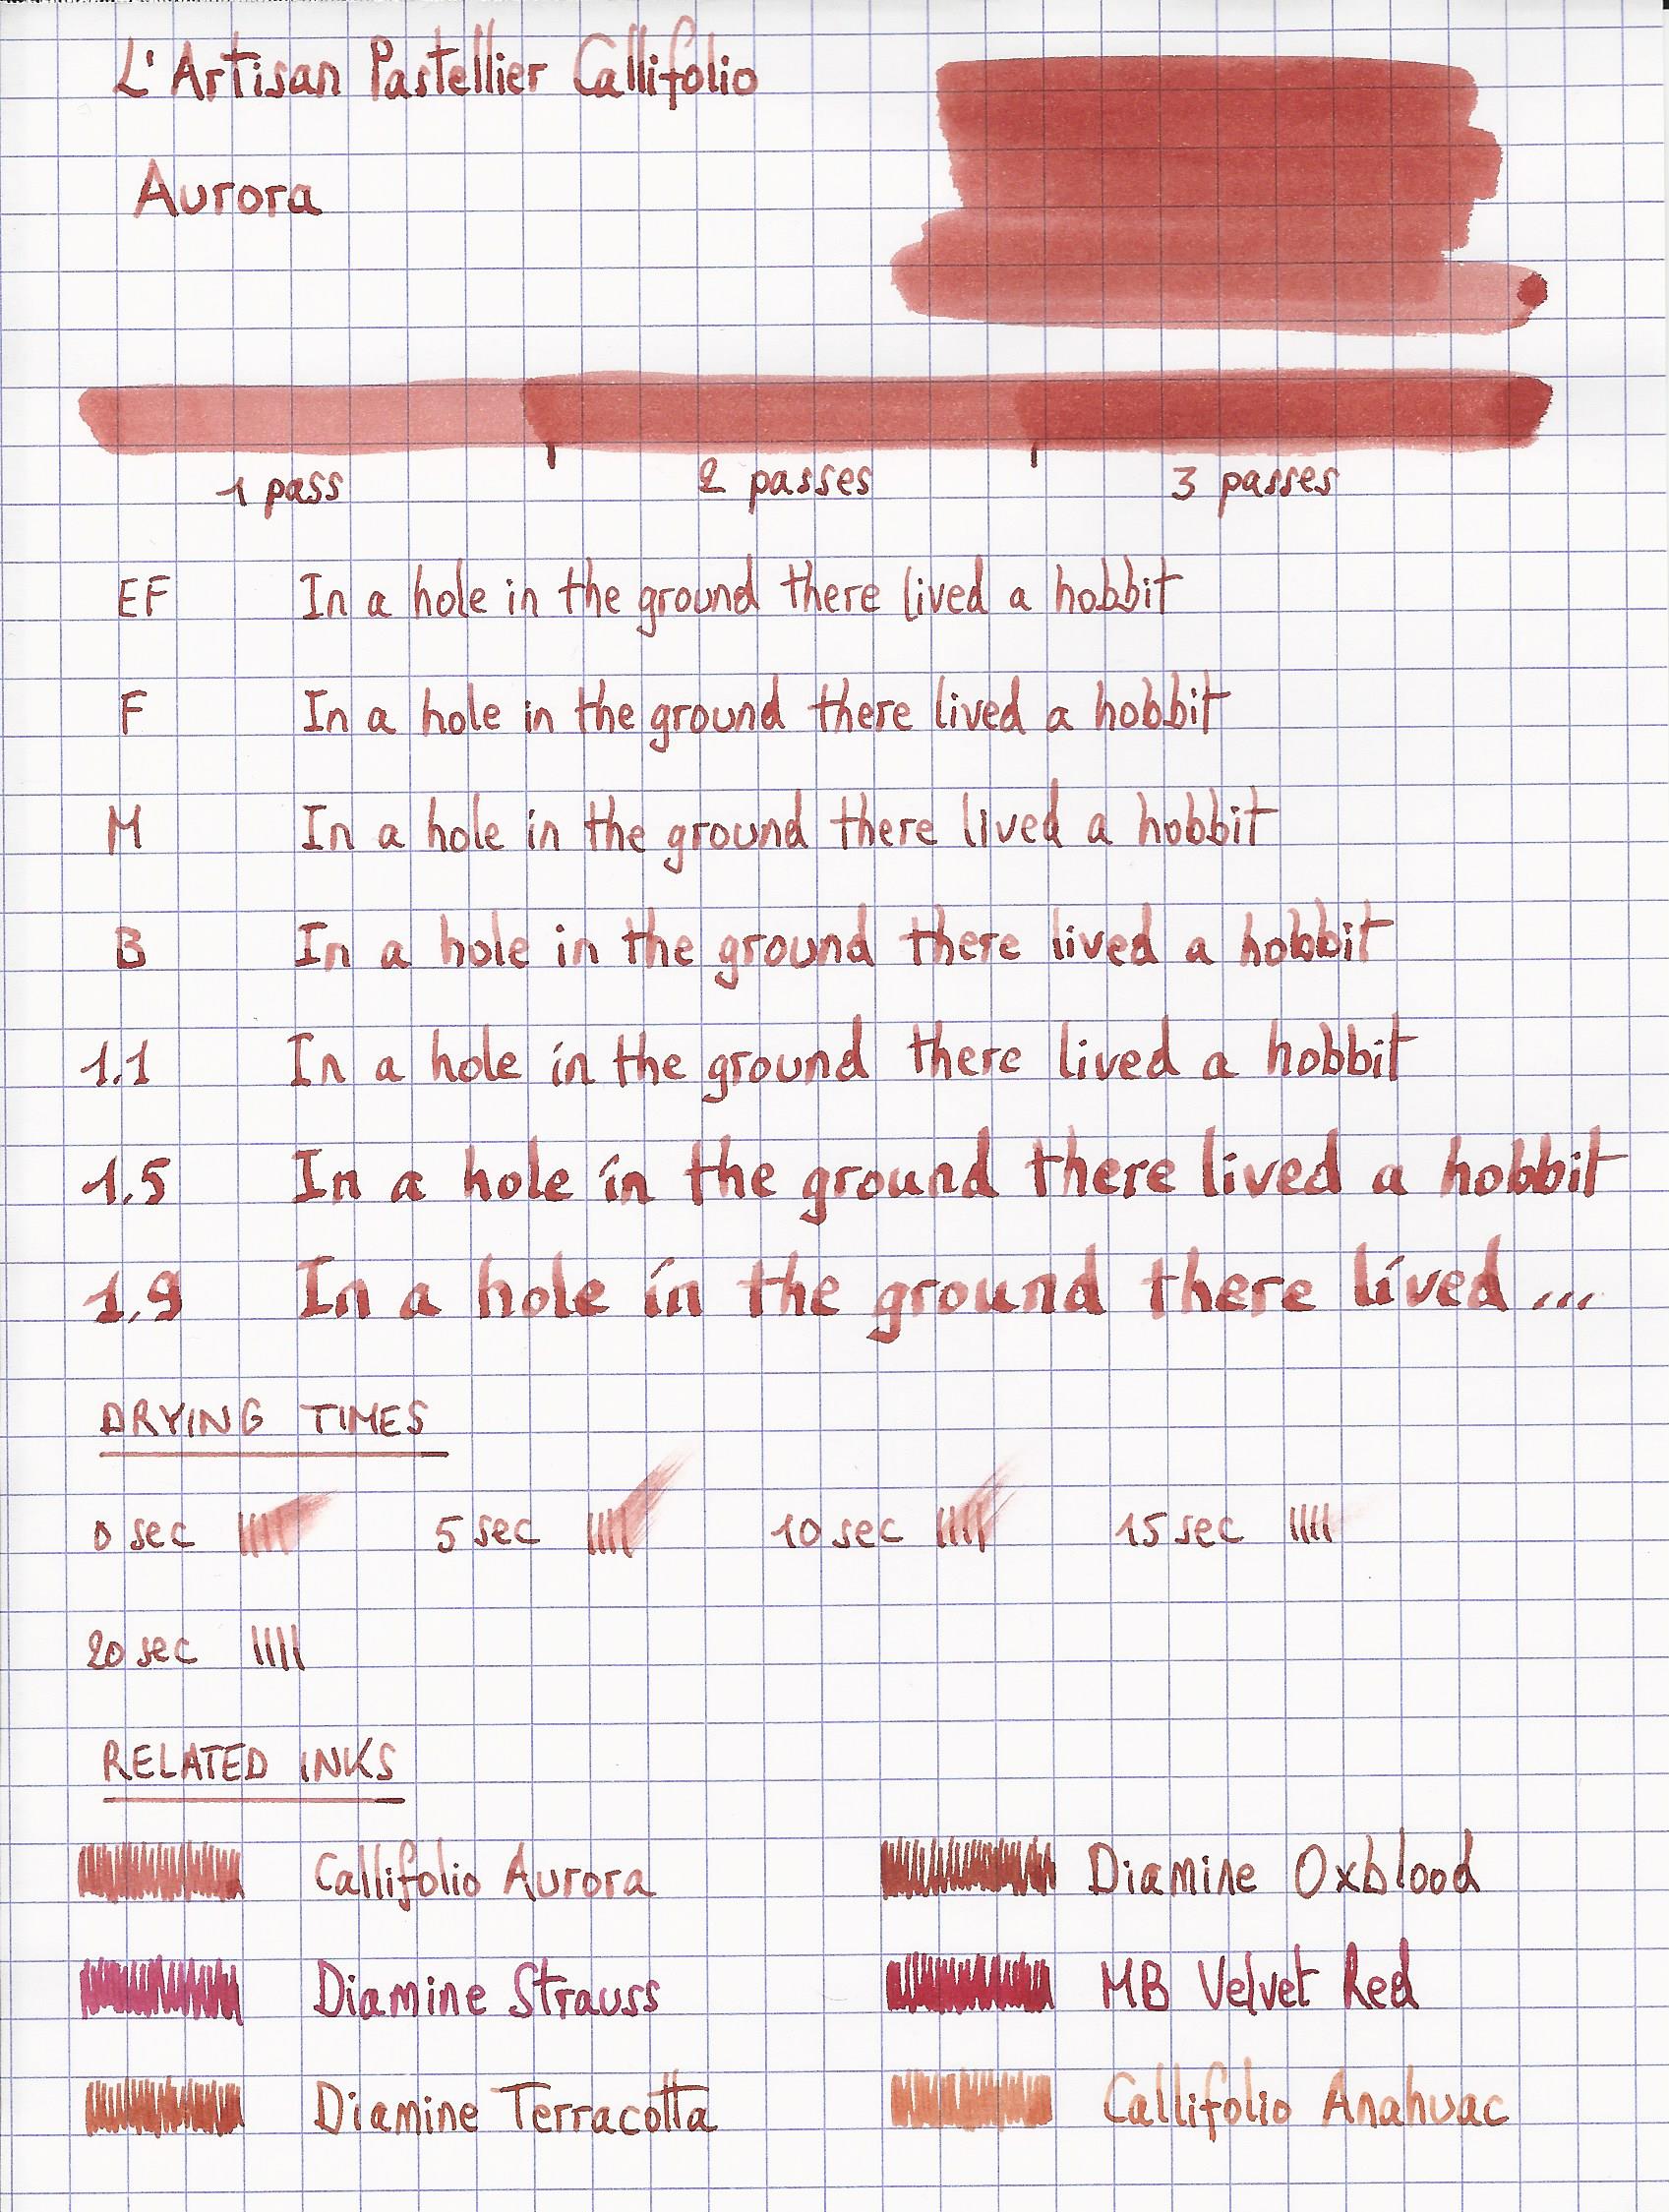 L'Artisan Pastellier Callifolio
Aurora
1 pass 2 passes 3 passes
EF In a hole in the ground there lived a hobbit
F In a hole in the ground there lived a hobbit
M In a hole in the ground there lived a hobbit
B In a hole in the ground there lived a hobbit
1.1 In a hole in the ground there lived a hobbit
1.5 In a hole in the ground there lived a hobbit
1.9 In a hole in the ground there lived ...
DRYING TIMES
0 sec 5 sec 10 sec 15 sec
20 sec
RELATED INKS
Callifolio Aurora Diamine Oxblood
Diamine Strauss MB Velvet Red
Diamine Terracotta Callifolio Anahuac